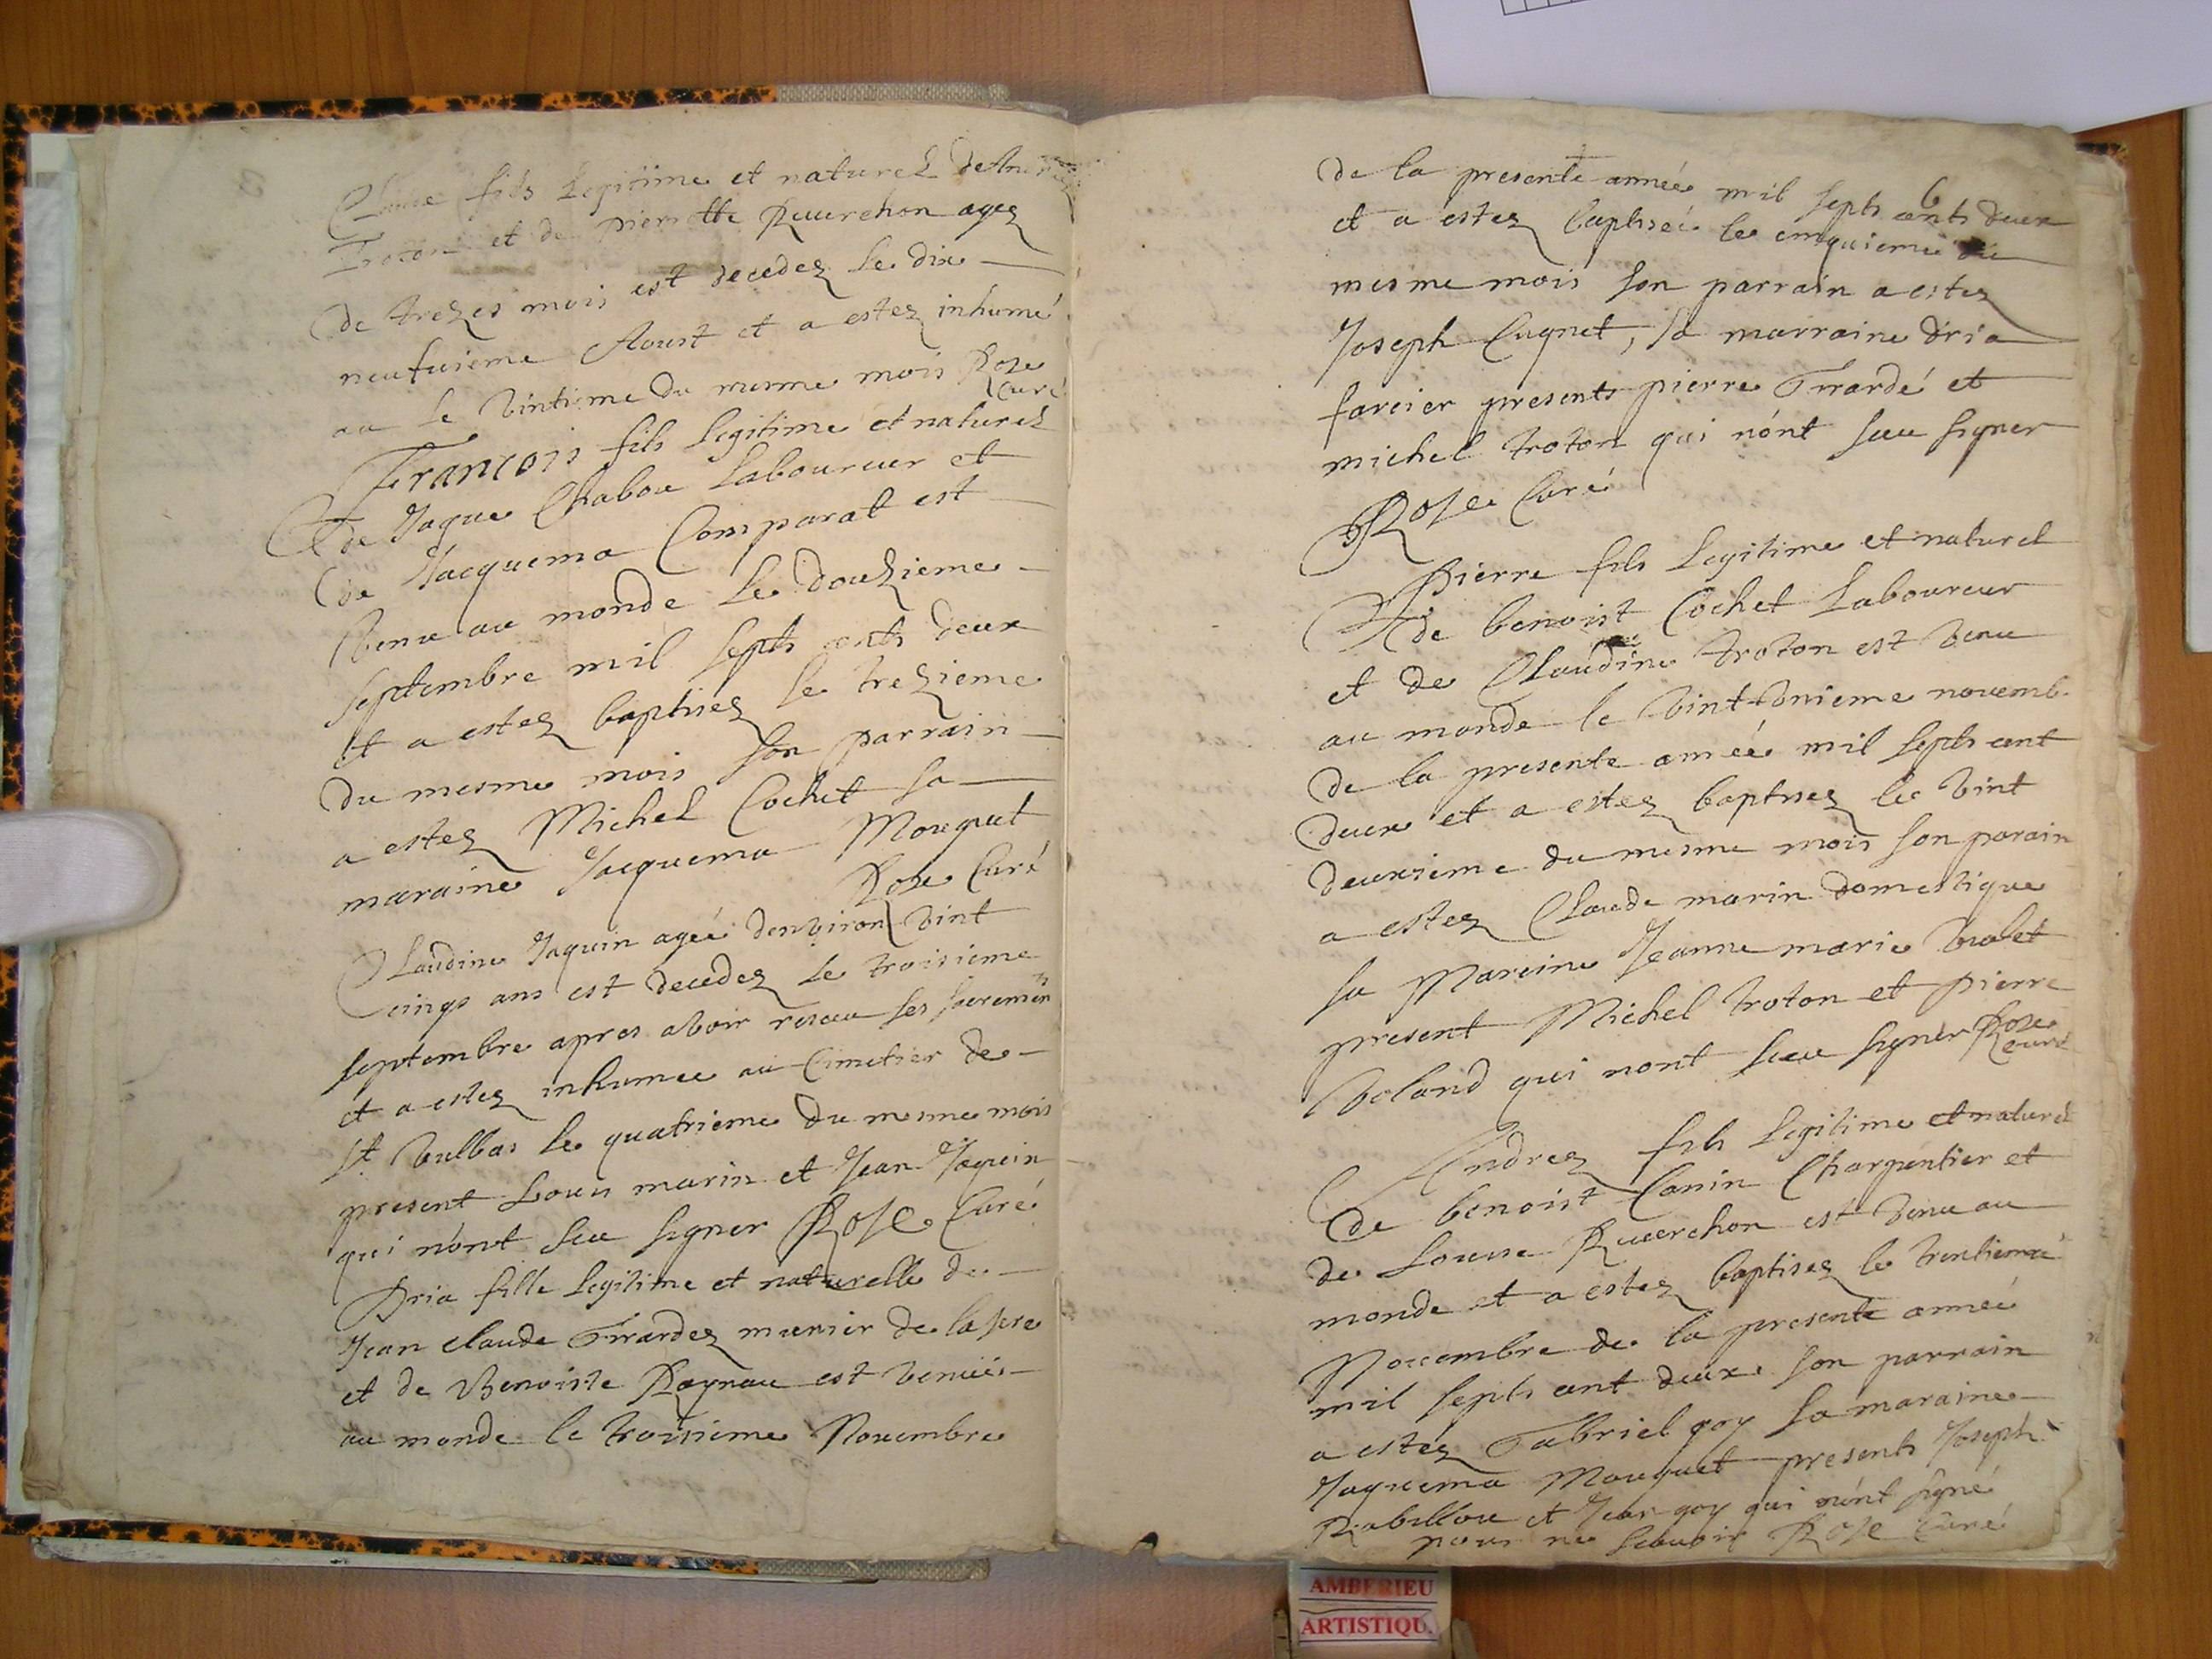 fils legitime et naturel de
Troton et de pierrette Reuerchon agez
de trezes mois est decedez le dix
neufuieme Aoust et a estez inhumé
le Vintieme du mesme mois Roze
Curé
François fils legitime et naturel
de Jaque Chabou laboureur et
de Jacquema Comparat est
Venu au monde le douzieme
septembre mil septs cents deux
et a estez baptisez le trezieme
du mesme mois son parrain
a estez Michel Cochet sa
maraine Jacquema Mouquet
Roze Curé
Claudine Jaquin ageé denviron Vint
cinqs ans est decedez le troisieme
septembre apres avoir reseu ses sacremen
ts
et a estez inhumee au Cimetier de
St Vulbas le quatrieme du mesme mois
present Louis marin et Jean Jaquin
qui n'ont seu signer Rose Curé
Dria fille legitime et naturelle de
Jean claude Girardez munier de la
et de Benoiste Raynau est venuë
au monde le troisieme Nouembre
6
de la presente anneé mil septs cents deux
et a estez baptiseé le cinquieme du
mesme mois son parrain a estez
Joseph Cugnet, sa marraine dria
farcier presents pierre Girardé et
michel troton qui n'ont seu signer
Rose Curé
Pierre fils legitime et naturel
de benoist Cochet laboureur
et de Claudine troton est Venu
au monde le Vint Vnieme novemb.
de la presente anneé mil septs cent
deux et a estez baptisez le Vint
deuxieme du mesme mois son parain
a estez Claude marin domestique
sa Mareine Jeanne marie
present Michel troton et pierre
Voland qui nont seu signer Roze
curé
Andrez fils legitime et naturel
de benoist Canin Charpentier et
de Louise Reuerchon est Venu au
monde et a estez baptisez le trentieme
Nouembre de la presente anneé
mil septs cent deux son parrain
a estéz Gabriel goy sa maraine
Jaquema Mouquet presents Joseph
Rabillou et Jean goy qui n'ont signé
pour ne scauoir Rose Curé
AMBERIEU
ARTISTIQU.